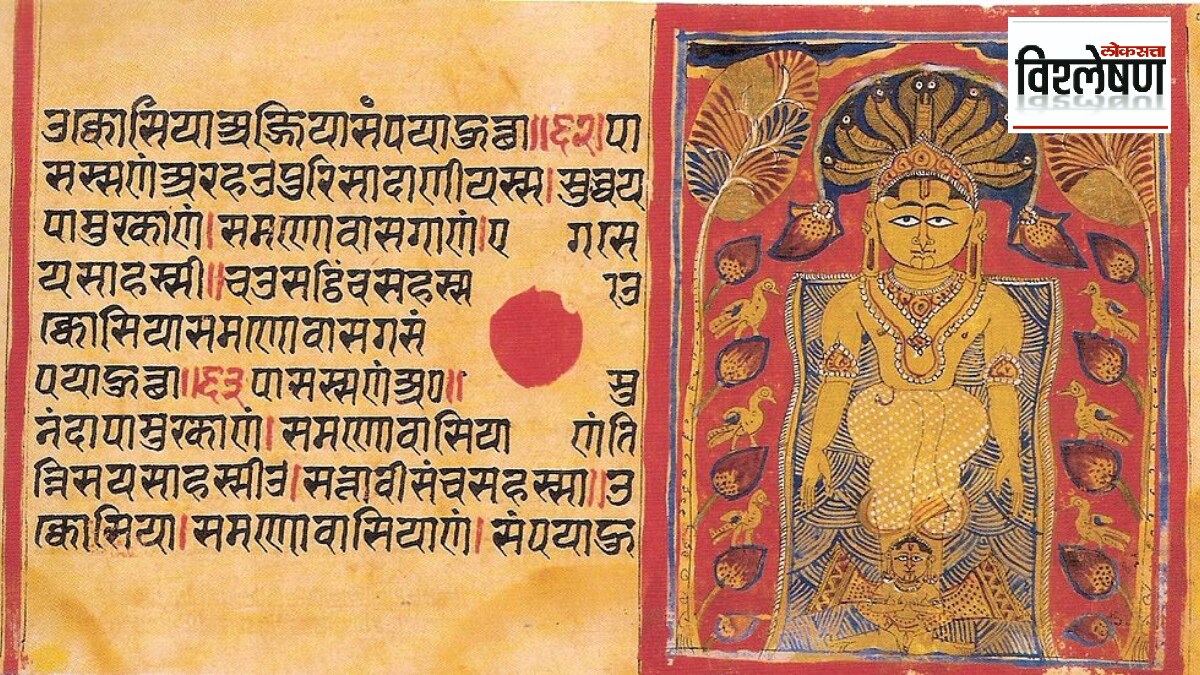 लोकसत्ता
विश्लेषण
उक्कोसिया अज्जियासंपया हुत्था॥६२॥पा
सस्सणं अरहउ पुरिसादाणीयस्स। सुव्वय
पामुरकाणं। समणोवासगाणं। ए गा स
यसाहस्सी॥ चउसट्ठिं च सहस्सा उ
क्कोसिया समणोवासगसं
पया हुत्था॥६३॥ पासस्सणं अर॥ सु
नंदापामुरकाणं। समणोवासिया णं ति
न्निसयसाहस्सीउ। सत्तावीसं च सहस्सा॥ उ
क्कोसिया। समणोवासियाणं। संपया हु